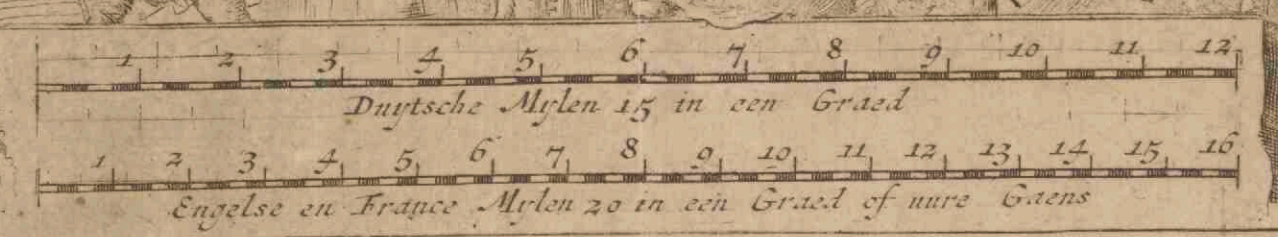 1 2 3 4 5 6 7 8 9 10 11 12
Duytsche Mylen 15 in een Graed
1 2 3 4 5 6 7 8 9 10 11 12 13 14 15 16
Engelse en France Mylen 20 in een Graed of uure Gaens